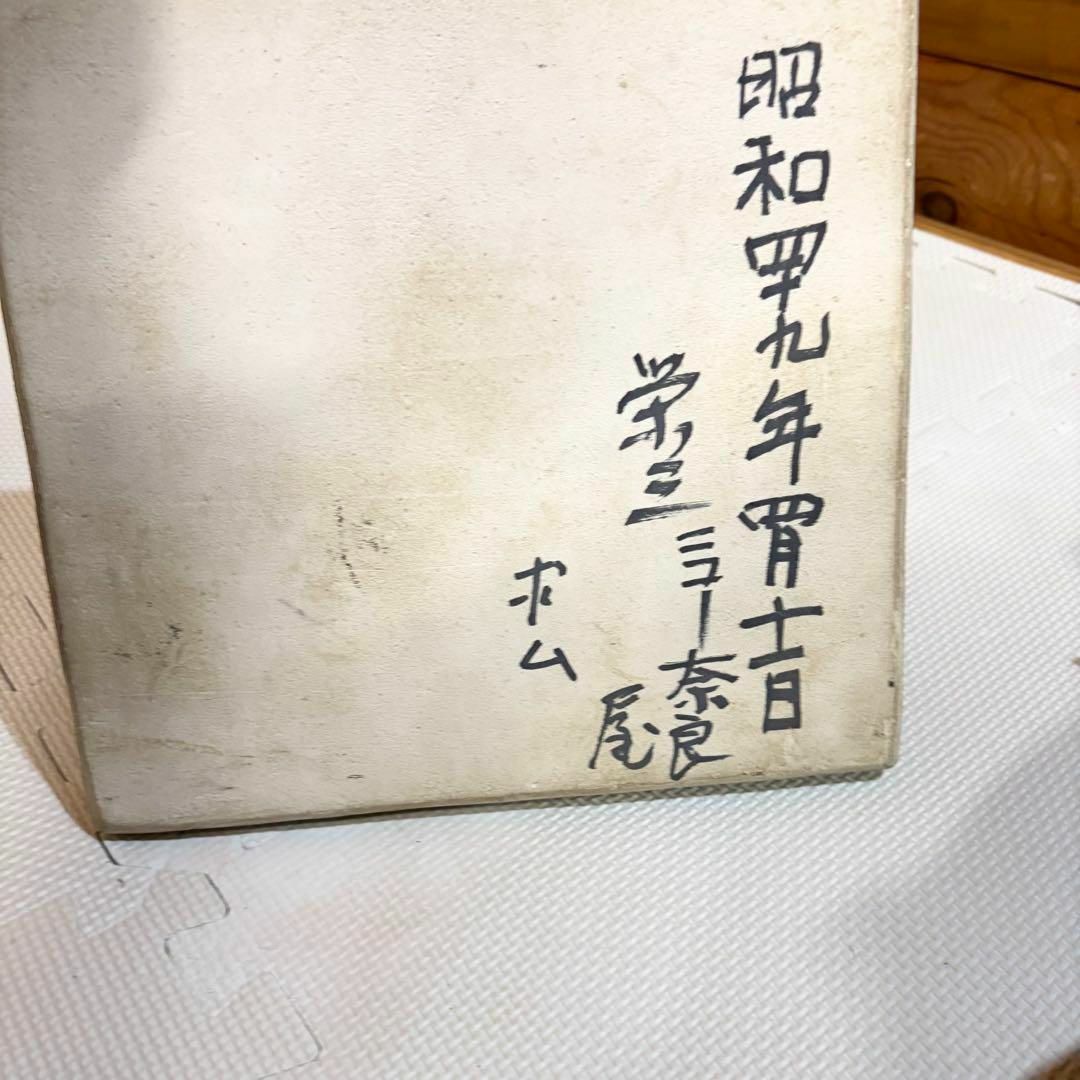 昭和四十九年四月十二日
栄三 ミユー奈良
尾
求ム